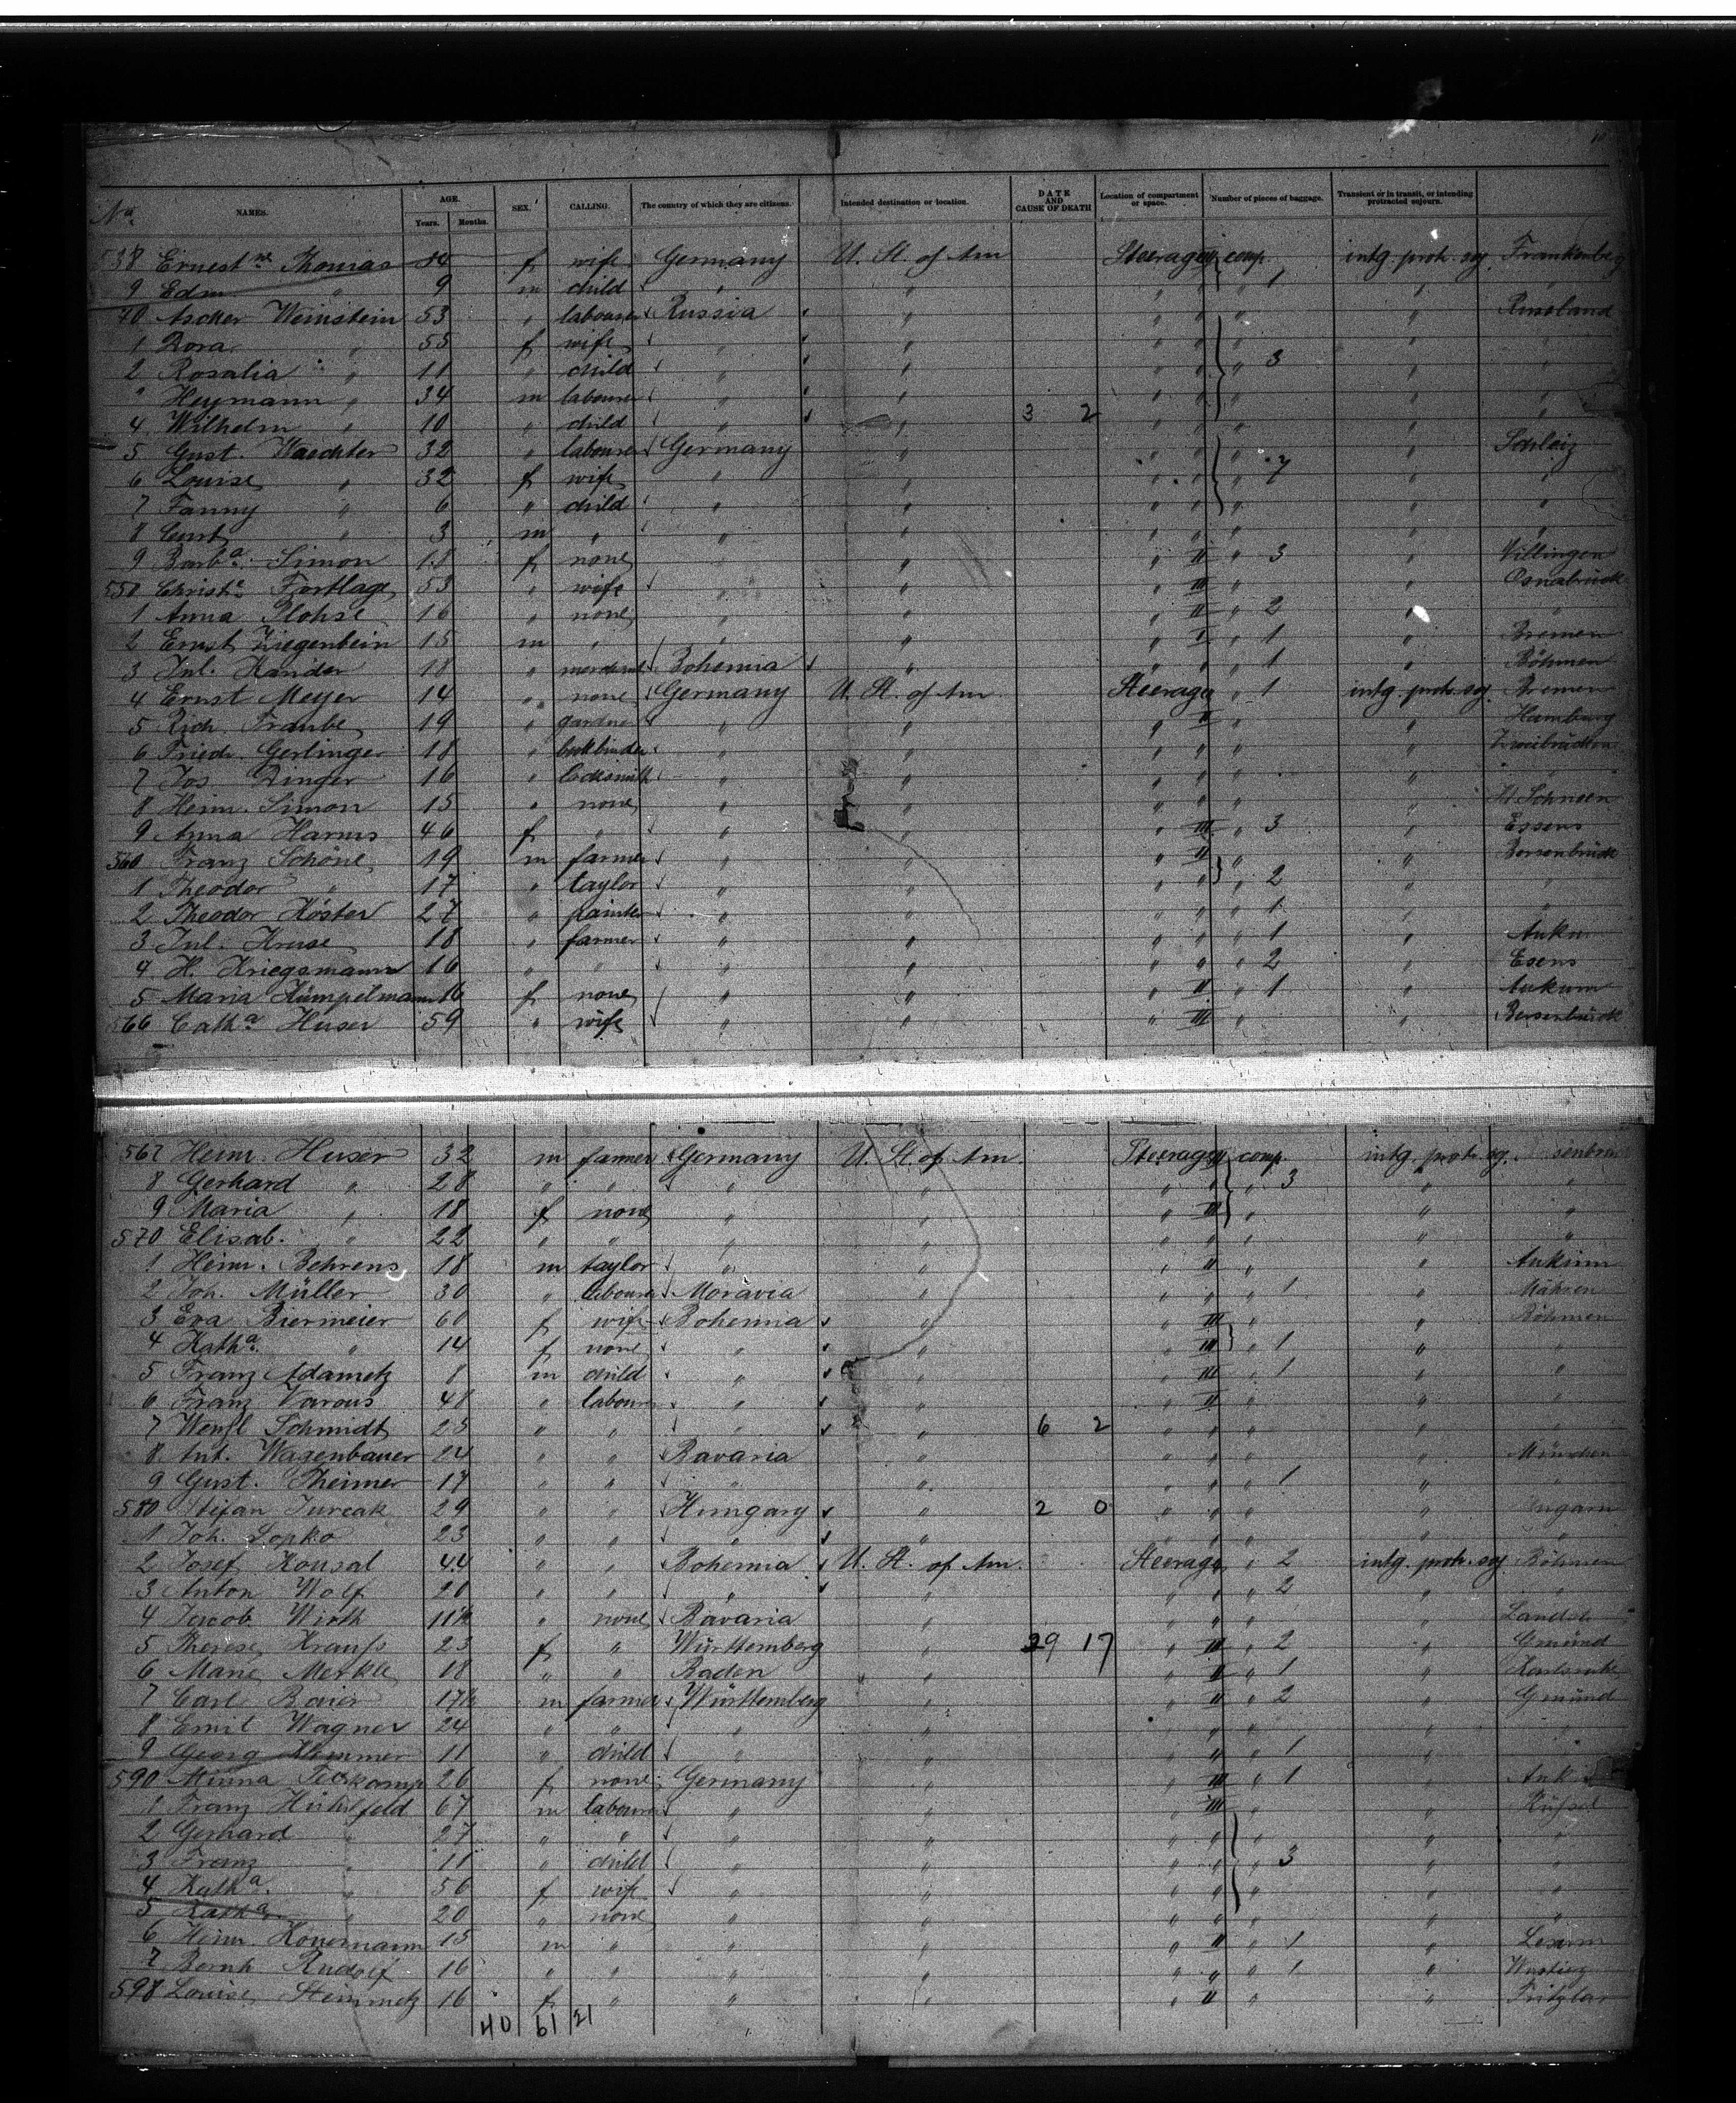 No. NAMES. AGE. Years. Months. SEX. CALLING. The country of which they are citizens. Intended destination or location. DATE AND CAUSE OF DEATH Location of compartment or space. Number of pieces of baggage. Transient or in transit, or intending protracted sojourn.
538 Ernestne Thomas f wife Germany U. St. of Am Steerage comp. intg. protr. soj. Frankenberg
9 Edm. " 9 m child " " " " 1 " "
40 Ascher Weinstein 53 " labourer Russia " " " " " Russland
1 Dora " 55 f wife " " " " " " "
2 Rosalia " 11 " child " " " " " 3 " "
" Heymann " 34 m labourer " " " " " " "
4 Wilhelm " 10 " child " " 3 2 " " " " "
5 Gust. Waechter 32 " labourer Germany " " " " " Schleiz
6 Louise " 32 f wife " " " " " 7 " "
7 Fanny " 6 " child " " " " " " "
8 Curt " 3 m " " " " " " " "
9 Barba. Simon 18 f none " " " II " 3 " Villingen
550 Christe Fortlage 53 " wife " " " III " " Osnabrück
1 Anna Plohse 16 " none " " " II " 2 " "
2 Ernst Ziegenbein 15 m " " " " " 1 " Bremen
3 Jul. Kander 18 " merchant Bohemia " " " " 1 " Böhmen
4 Ernst Meyer 14 " none Germany U. St. of Am Steerage " 1 intg. protr. soj. Bremen
5 Rich. Traube 19 " gardner " " " II " " Hamburg
6 Friedr. Gerlinger 18 " bookbinder " " " " " " Zweibrücken
7 Jos Zinger 16 " locksmith " " " " " " "
8 Heinr. Simon 15 " none " " " " " " Kl. Schneen
9 Anna Harms 46 f " " " " III " 3 " Essens
560 Franz Schöne 19 m farmer " " " II " " Bersenbrück
1 Theodor " 17 " taylor " " " " " 2 " "
2 Theodor Köster 27 " painter " " " " " 1 " "
3 Jul. Kruse 18 " farmer " " " " " 1 " Ankum
4 H. Kriegsmann 16 " " " " " " " 2 " Esens
5 Maria Kümpelmann 16 f none " " " II " 1 " Ankum
566 Catha Huser 59 " wife " " " III " " Bersenbrück
567 Heinr. Huser 32 m farmer Germany U. St. of Am. Steerage comp. intg. protr. soj.
8 Gerhard " 28 " " " " " " " 3 " "
9 Maria " 18 f none " " " III " " "
570 Elisab. " 22 " " " " " " " " "
1 Heinr. Behrens 18 m taylor " " " II " " Ankum
2 Joh. Müller 30 " labourer Moravia " " " " 1 " Mähren
3 Eva Biermeier 60 f wife Bohemia " " III " " Böhmen
4 Katha. " 14 f none " " " III " 1 " "
5 Franz Adametz 8 m child " " " III " 1 " "
6 Franz Varous 48 " labourer " " " II " " "
7 Wenzl Schmidt 25 " " " " 6 2 " " " " "
8 Ant. Wagenbauer 24 " " Bavaria " " " " " München
9 Gust. Theimer 17 " " " " " " " 1 " "
580 Stefan Jurcak 29 " " Hungary " 2 0 " " " " Ungarn
1 Joh. Lopko 23 " " " " " " " " "
2 Josef Kousal 44 " " Bohemia U. St. of Am. Steerage " 2 intg. protr. soj. Böhmen
3 Anton Wolf 20 " " " " " " " 2 " "
4 Jacob Wirth 11½ " none Bavaria " " " " "
5 Therese Krauss 23 f " Württemberg " 29 17 " III " 2 " Gmünd
6 Marie Merkle 18 " " Baden " " II " 1 " Karlsruhe
7 Carl Baier 17½ m farmer Württemberg " " II " 2 " Gmünd
8 Emil Wagner 24 " " " " " " " " "
9 Georg Klemmer 11 " child " " " " " 1 "
590 Minna 26 f none Germany " " III " 1 "
1 Franz 67 m labourer " " " III " "
2 Gerhard " 27 " " " " " " " " "
3 Franz " 11 " child " " " " " 3 " "
4 Katha. " 56 f wife " " " " " " "
5 Katha. " 20 " none " " " " " " "
6 Heinr. Könermann 15 m " " " " II " 1 "
7 Bernh Rudolf 16 " " " " " " " 1 "
598 Louise Steinmetz 16 f " " " " II " " Fritzlar
40 61 21